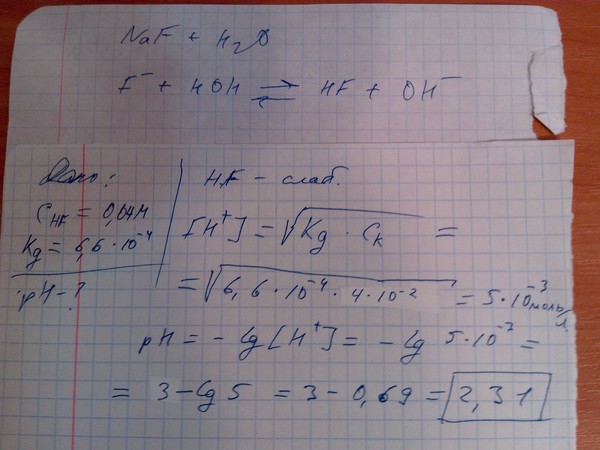 NaF + H₂O
F⁻ + HOH ⇄ HF + OH⁻
Дано:
C_HF = 0,04М
Kg = 6,6 · 10⁻⁴
pH - ?
HF - слаб.
[H⁺] = √Kg · Cк =
= √6,6 · 10⁻⁴ · 4 · 10⁻² = 5 · 10⁻³ моль/л.
pH = - lg [H⁺] = - lg 5 · 10⁻³ =
= 3 - lg 5 = 3 - 0,69 = 2,31